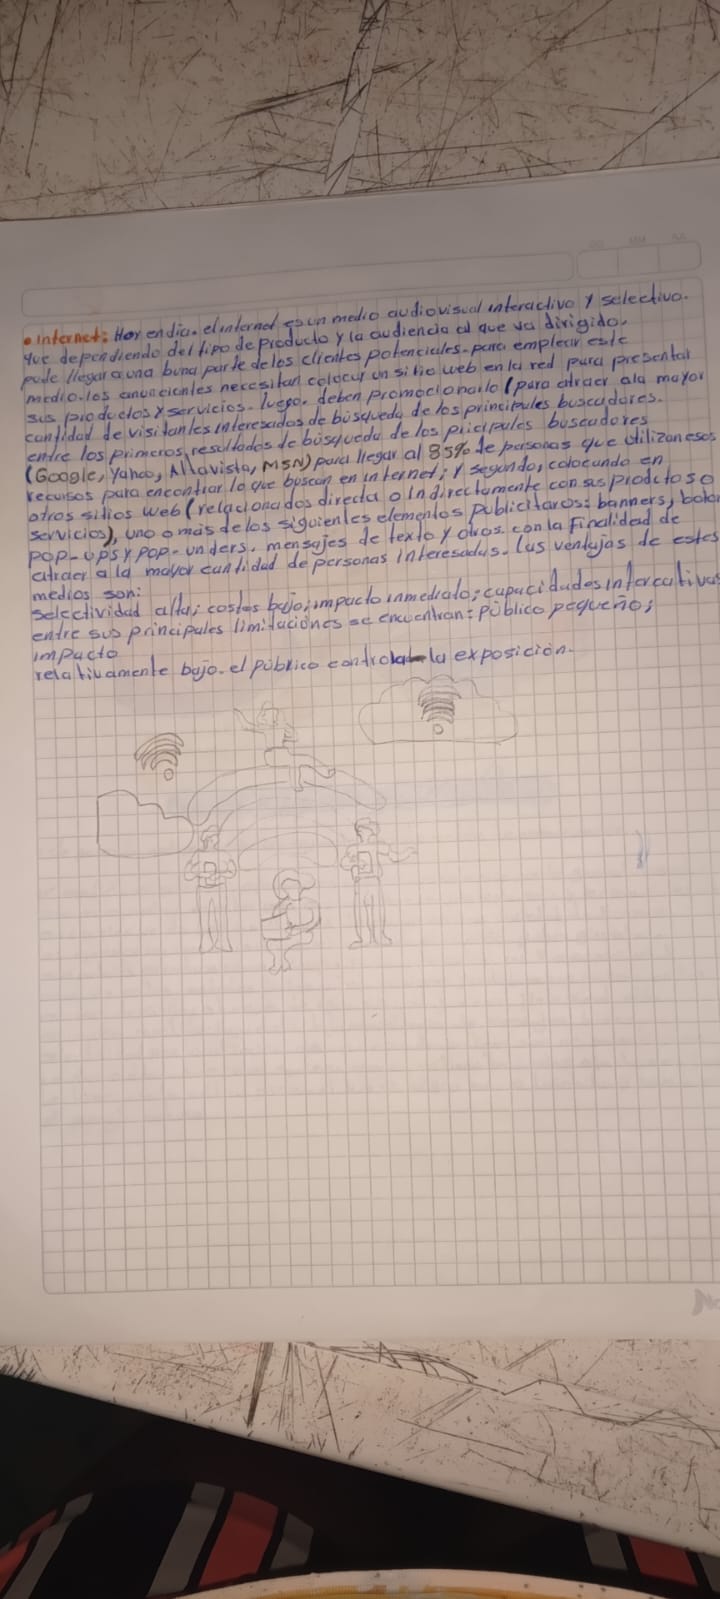 • Internet: Hoy en dia. el internet es un medio audiovisual interactivo y selectivo.
que dependiendo del tipo de producto y la audiencia al que va dirigido.
pude llegar a una buna parte de los clientes potenciales. para emplear este
medio. los anuncientes necesitan colocar un sitio web en la red para presentar
sus productos y servicios. luego. deben promocionarlo (para atraer a la mayor
cantidad de visitantes interesados de búsqueda de los principales buscadores.
entre los primeros resultados de búsqueda de los pricipales buscadores
(Google, Yahoo, Altavista, MSN) para llegar al 85% de personas que utilizan esos
recursos para encontrar lo que buscan en internet; y segundo, colocando en
otros sitios web (relacionados directa o Indirectamente con sus prodctos o
servicios), uno o más de los siguientes elementos publicitaros: banners,
pop-ups y pop-unders. mensajes de texto y otros. con la Finalidad de
atraer a la mayor cantidad de personas interesadas. las ventajas de estes
medios son:
selectividad alta; costos bajo; impacto inmediato; capacidades
entre sus principales limitaciones se encuentran: público pequeño;
impacto
relativamente bajo. el público controla la exposición.